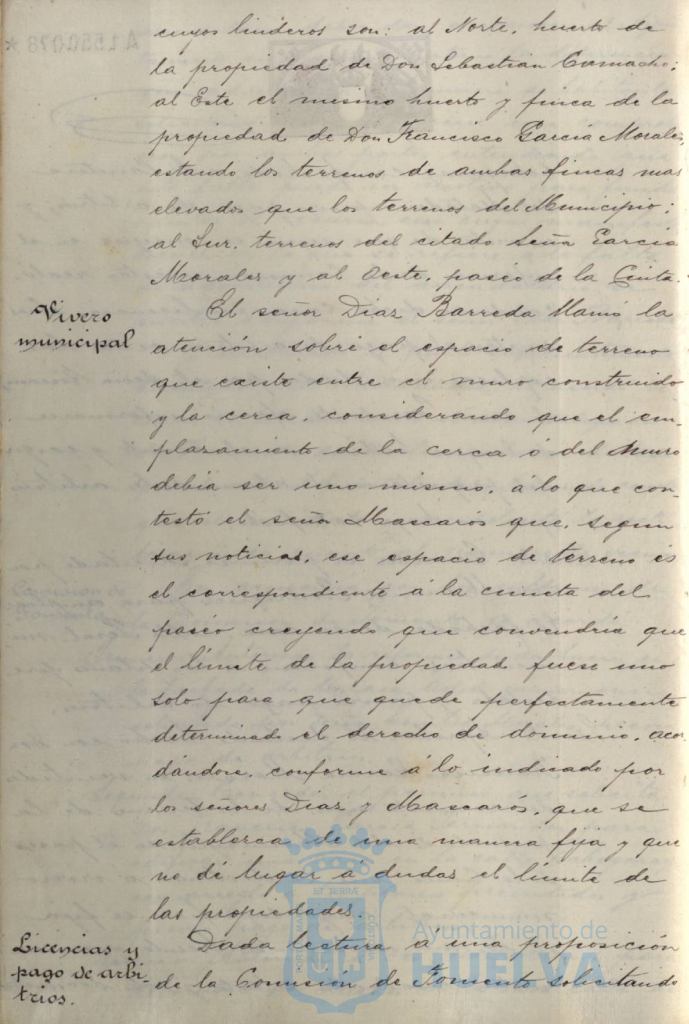 A1550078 *
cuyos linderos son: al Norte, huerto de
la propiedad de Don Sebastián Camacho;
al Este el mismo huerto y finca de la
propiedad de Don Francisco García Morales,
estando los terrenos de ambas fincas mas
elevados que los terrenos del Municipio;
al Sur, terrenos del citado Señor García
Morales y al Oeste, paseo de la Cinta.
Vivero
municipal
El señor Díaz Barreda llamó la
atención sobre el espacio de terreno
que existe entre el muro construido
y la cerca, considerando que el em-
plazamiento de la cerca ó del muro
debía ser uno mismo, á lo que con-
testó el señor Mascarós que, segun
sus noticias, ese espacio de terreno es
el correspondiente á la cuneta del
paseo creyendo que convendría que
el límite de la propiedad fuese uno
solo para que quede perfectamente
determinado el derecho de dominio, acor
dándose, conforme á lo indicado por
los señores Díaz y Mascarós, que se
establezca de una manera fija y que
no dé lugar á dudas el límite de
las propiedades.
Licencias y
pago de arbi-
trios.
Dada lectura a una proposición
de la Comisión de Fomento solicitando
Ayuntamiento de
HUELVA